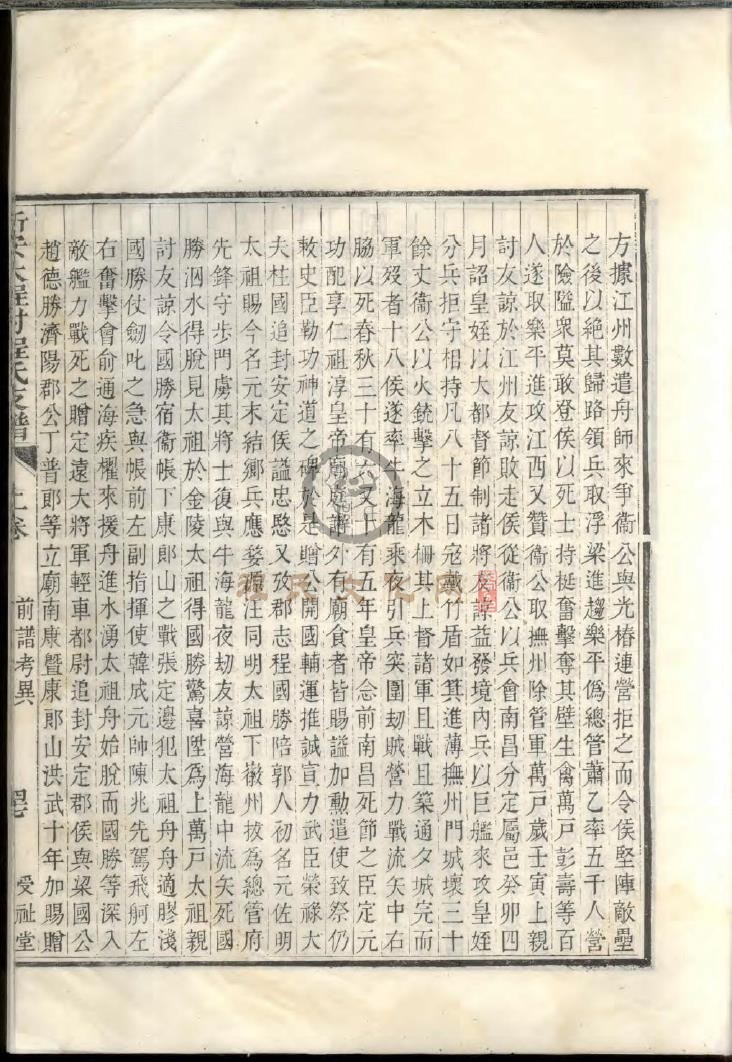 方據江州數遣舟師來爭衞公與光椿連營拒之而令侯堅陣敵壘
之後以絶其歸路領兵取浮梁進趨樂平僞總管蕭乙率五千人營
於險隘衆莫敢登侯以死士持梃奮擊奪其壁生禽萬戸彭壽等百
人遂取樂平進攻江西又贊衞公取撫州除管軍萬戸歲壬寅上親
討友諒於江州友諒敗走侯從衞公以兵會南昌分定屬邑癸卯四
月詔皇姪以大都督節制諸將友諒益發境内兵以巨艦來攻皇姪
分兵拒守相持凡八十五日宼戴竹盾如箕進薄撫州門城壞三十
餘丈衞公以火銃擊之立木栅其上督諸軍且戰且築通夕城完而
軍歿者十八侯遂率牛海龍乘夜引兵突圍刼賊營力戰流矢中右
脇以死春秋三十有六又上有五年皇帝念前南昌死節之臣定元
功配享仁祖淳皇帝廟庭諸外有廟食者皆賜諡加勳遣使致祭仍
敕史臣勒功神道之碑於是贈公開國輔運推誠宣力武臣榮祿大
夫柱國追封安定侯諡忠愍又攷郡志程國勝陪郭人初名元佐明
太祖賜今名元末結鄉兵應婺源汪同明太祖下徽州拔為總管府
先鋒守步門虜其將士復與牛海龍夜刼友諒營海龍中流矢死國
勝泅水得脫見太祖於金陵太祖得國勝驚喜陞爲上萬戸太祖親
討友諒令國勝宿衞帳下康郎山之戰張定邊犯太祖舟舟適膠淺
國勝仗劒叱之急與帳前左副指揮使韓成元帥陳兆先駕飛舸左
右奮擊會俞通海疾櫂來援舟進水湧太祖舟始脫而國勝等深入
敵艦力戰死之贈定遠大將軍輕車都尉追封安定郡侯與梁國公
趙德勝濟陽郡公丁普郎等立廟南康曁康郎山洪武十年加賜贈
新安大程村程氏支譜 上卷 前譜考異 受祉堂